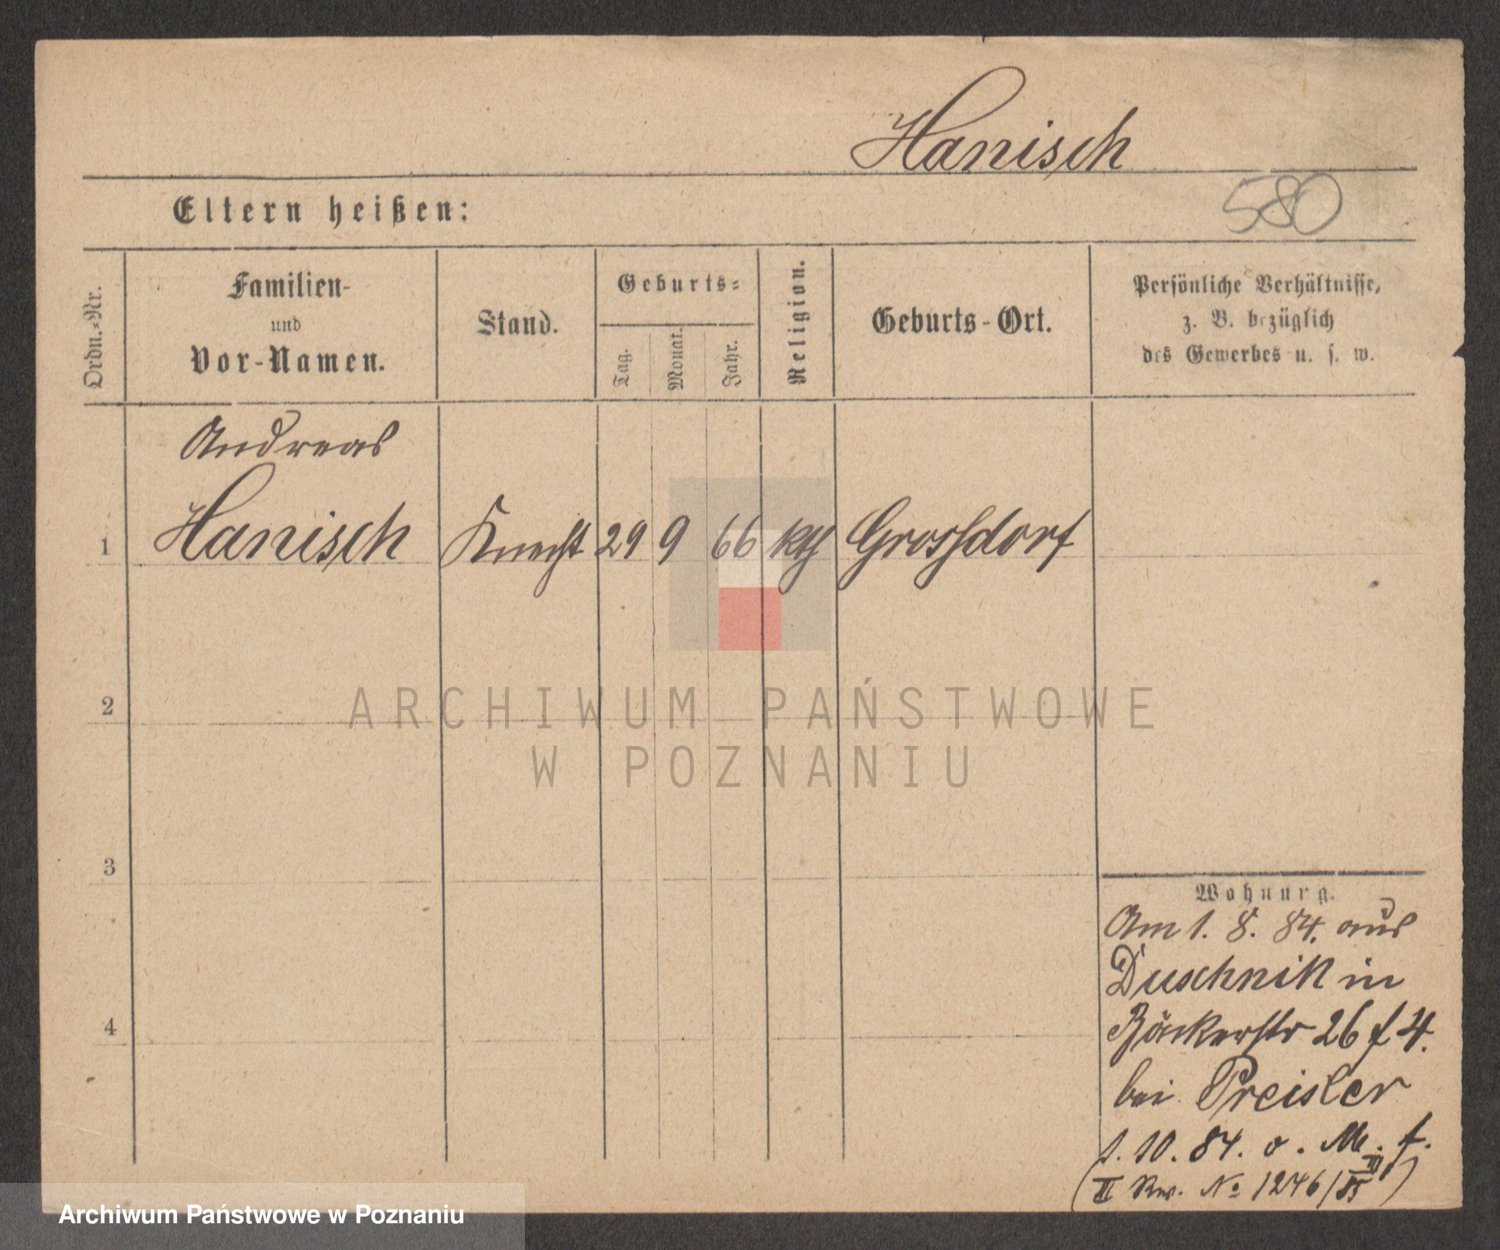 Hanisch
580
Eltern heißen:
Ordn.-Nr.
Familien-
und
Vor-Namen.
Stand.
Geburts-
Tag.
Monat.
Jahr.
Religion.
Geburts-Ort.
Persönliche Verhältnisse,
z. B. bezüglich
des Gewerbes u. s. w.
Andreas
1 Hanisch Knecht 29 9 66 kth Grossdorf
2
ARCHIWUM PAŃSTWOWE
W POZNANIU
3
Wohnung.
Am 1. 8. 84. aus
Duschnik in
Bäckerstr 26 f 4.
bei Preisler
1. 10. 84. o. M. f.
4
(II Rev. No 1246/85)
Archiwum Państwowe w Poznaniu